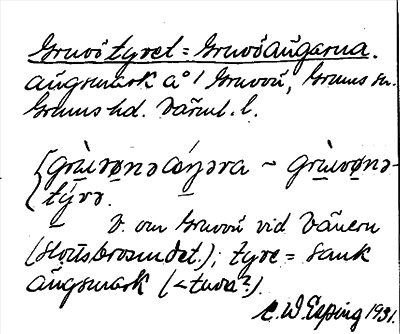 Gruvötyvet = Gruvöängarna.
ängsmark å Gruvön, Grums sn.
Grums hd. Värml. l.
grùvǝnǝ ǝra ~ grùvǝnǝ-
tývǝ.
V. om Gruvön vid Vänern
(Slottsbrosundet.); tyve = sank
ängsmark (< tuva?).
C. W. Esping 1931.